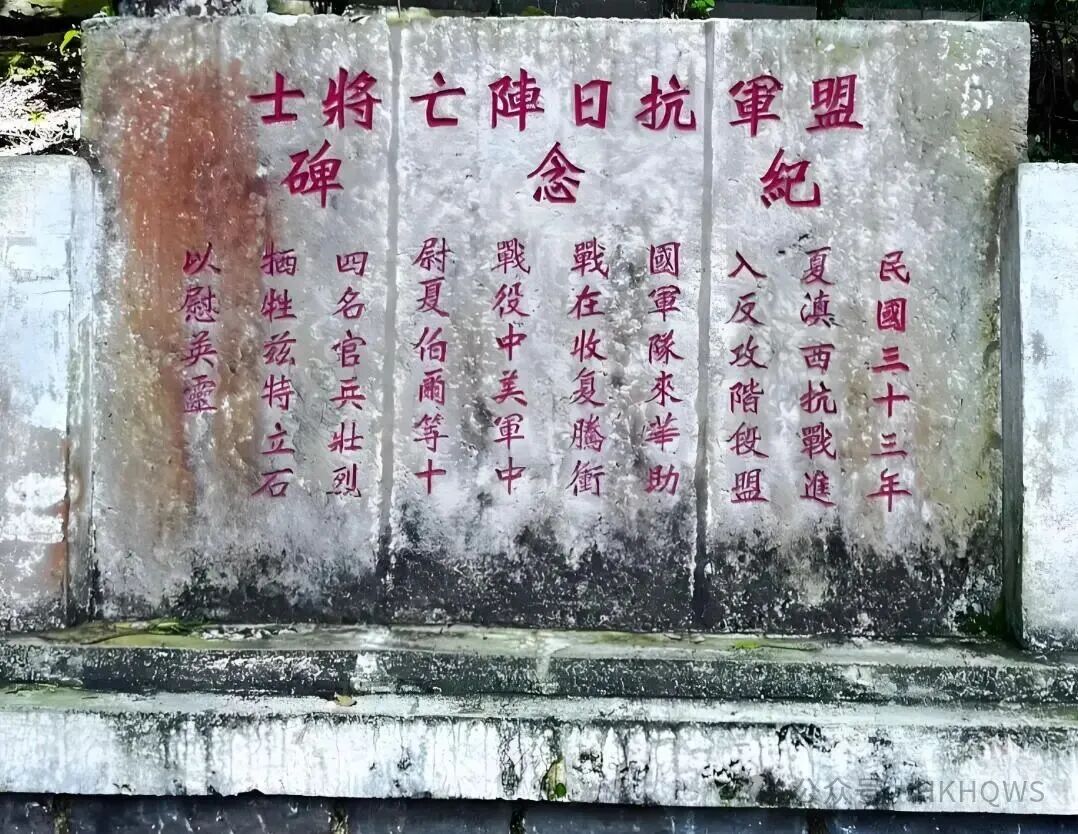 盟軍抗日陣亡將士
紀念碑
民國三十三年
夏滇西抗戰進
入反攻階段盟
國軍隊來華助
戰在收复騰衝
戰役中美軍中
尉夏伯爾等十
四名官兵壯烈
牺牲兹特立石
以慰英靈
公众号
HKHQWS